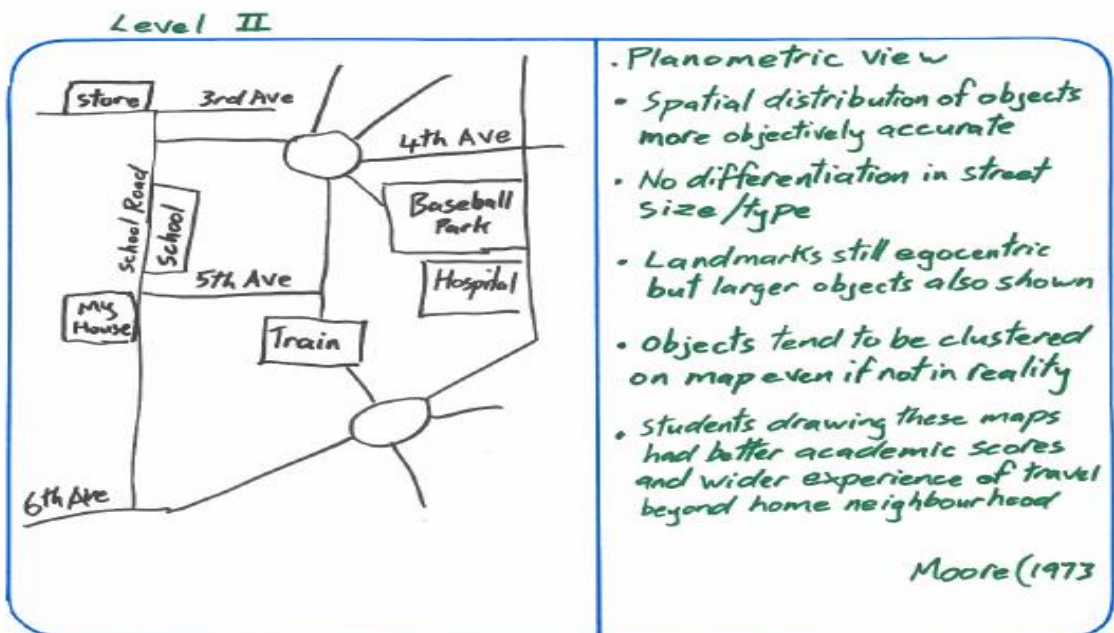 Level II
store
3rd Ave
4th Ave
School Road
School
Baseball
Park
5th Ave
Hospital
My
House
Train
6th Ave
. Planometric view
• Spatial distribution of objects
more objectively accurate
• No differentiation in street
size/type
• Landmarks still egocentric
but larger objects also shown
• Objects tend to be clustered
on map even if not in reality
• Students drawing these maps
had better academic scores
and wider experience of travel
beyond home neighbourhood
Moore (1973